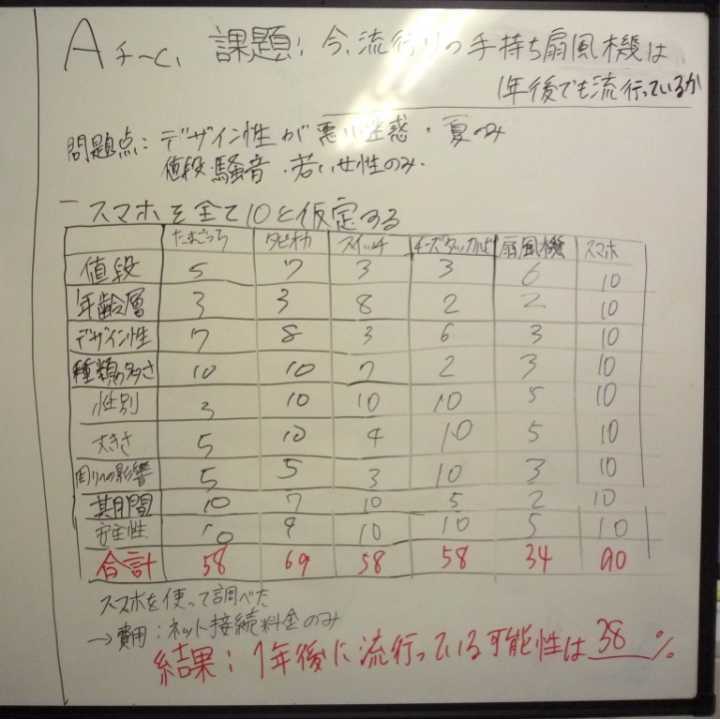 Aチーム 課題: 今、流行りの手持ち扇風機は
1年後でも流行っているか
問題点: デザイン性が悪い 迷惑・夏のみ
値段 騒音・若い女性のみ.
スマホを全て10と仮定する
たまごっち タピオカ スイッチ チーズタッカルビ 扇風機 スマホ
値段 5 7 3 3 6 10
年齢層 3 3 8 2 2 10
デザイン性 7 8 3 6 3 10
種類の多さ 10 10 7 2 3 10
性別 3 10 10 10 5 10
大きさ 5 10 4 10 5 10
周りへの影響 5 5 3 10 3 10
期間 10 7 10 5 2 10
安全性 10 9 10 10 5 10
合計 58 69 58 58 34 90
スマホを使って調べた
→費用:ネット接続料金のみ
結果: 1年後に流行っている可能性は 38 %